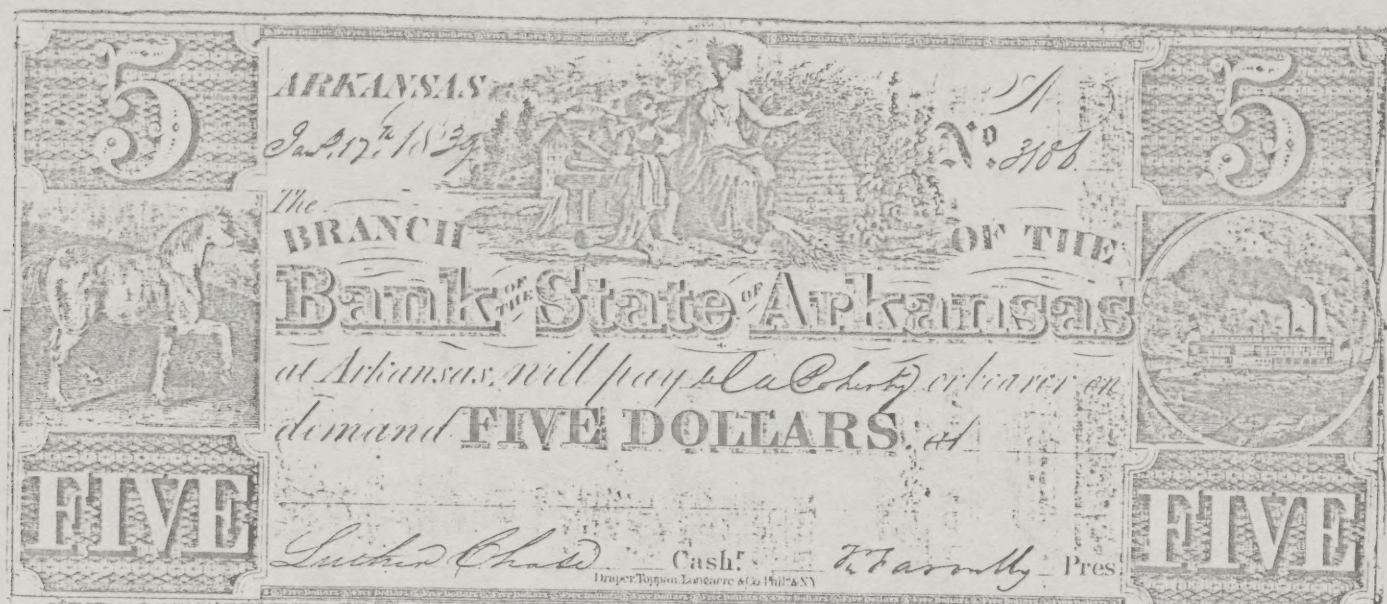 5 5
ARKANSAS A
17th 1839 No. 3108
The
BRANCH OF THE
Bank OF THE State OF Arkansas
at Arkansas, will pay to or bearer on
demand FIVE DOLLARS, at
FIVE FIVE
Luther Chase Cashr. Pres
Draper, Toppan, Longacre & Co. Phila. & N.Y.